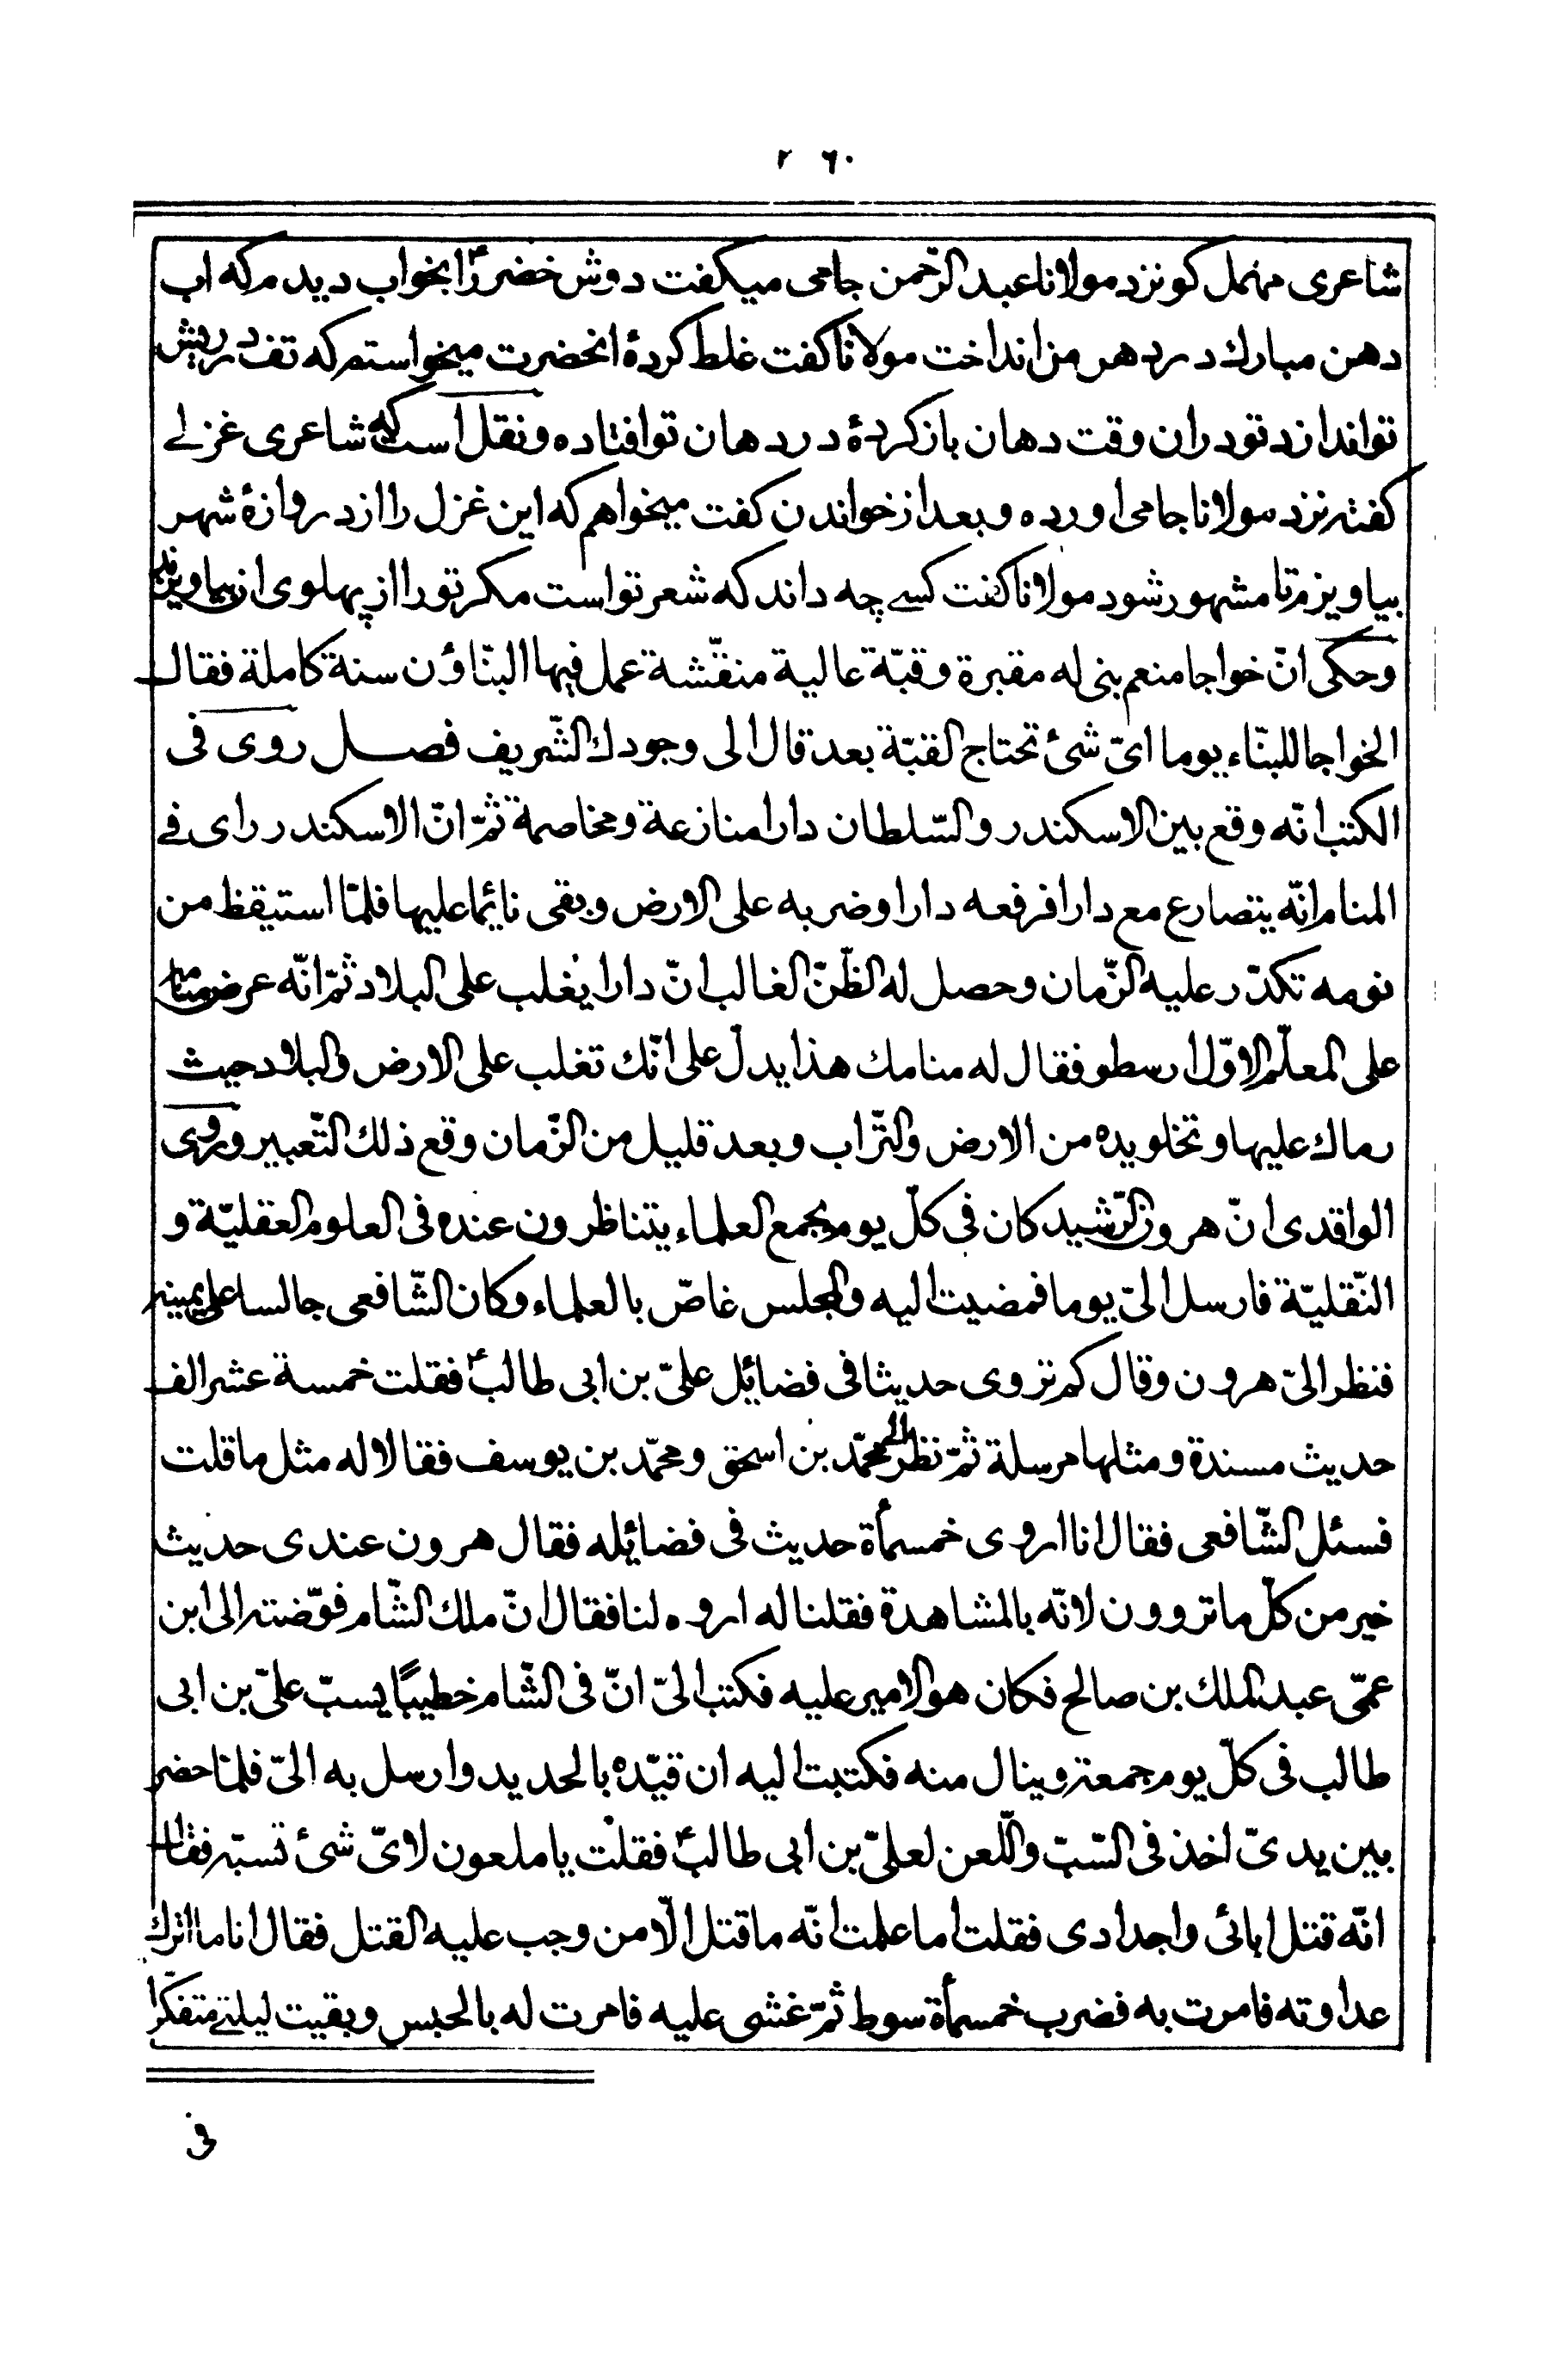 ٢٦٠
شاعری مهمل کو نزد مولانا عبد الرّحمن جامی میکفت دوش خضر را بخواب دیدم که اب
دهن مبارك در دهن من انداخت مولانا کفت غلط کردهٔ انحضرت میخواستم که تف در ریش
تو اندازد تو دران وقت دهان باز کردهٔ در دهان تو افتاده و نقل است که شاعری غزلے
کفته نزد مولانا جامی اورده و بعد از خواندن کفت میخواهم که این غزل را از دروازهٔ شهر
بیاویزم تا مشهور شود مولانا کفت کسے چه داند که شعر تو است مکر تو را از پهلوی ان بیاویزند
وحكى انّ خواجا منعم بنى له مقبرة وقبّة عالية منقّشة عمل فيها البنّاؤن سنة كاملة فقال
الخواجا للبنّاء يوما اىّ شئ تحتاج القبّة بعد قال الى وجودك الشّريف فصل روى فى
الكتب انّه وقع بين الاسكندر والسّلطان دارا منازعة ومخاصمة ثمّ انّ الاسكندر راى فے
المنام انّه يتصارع مع دارا فرفعه دارا وضربه على الارض وبقى نائما عليها فلمّا استيقظ من
نومه تكدّر عليه الزّمان وحصل له الظّنّ الغالب انّ دارا يغلب على البلاد ثمّ انّه عرض منامه
على المعلّم الاوّل ارسطو فقال له منامك هذا يدلّ على انّك تغلب على الارض والبلاد حيث
رماك عليها وتخلو يده من الارض والتّراب وبعد قليل من الزّمان وقع ذلك التّعبير وروى
الواقدى انّ هرون الرّشيد كان فى كلّ يوم يجمع العلماء يتناظرون عنده فى العلوم العقليّة و
النّقليّة فارسل الىّ يوما فمضيت اليه والمجلس غاصّ بالعلماء وكان الشّافعى جالسا على يمينه
فنظر الىّ هرون وقال كم تروى حديثا فى فضائل علىّ بن ابى طالبؑ فقلت خمسة عشر الف
حديث مسندة ومثلها مرسلة ثمّ نظر الى محمّد بن اسحق ومحمّد بن يوسف فقالا له مثل ما قلت
فسئل الشّافعى فقال انا اروى خمسمأة حديث فى فضائله فقال هرون عندى حديث
خير من كلّ ما تروون لانّه بالمشاهدة فقلنا له اروه لنا فقال انّ ملك الشّام فوّضته الى ابن
عمّى عبد الملك بن صالح فكان هو الامير عليه فكتب الىّ انّ فى الشّام خطيبًا يسبّ علىّ بن ابى
طالب فى كلّ يوم جمعة وينال منه فكتبت اليه ان قيّده بالحديد وارسل به الىّ فلمّا حضر
بين يدىّ اخذ فى السّبّ واللّعن لعلىّ بن ابى طالبؑ فقلت يا ملعون لاىّ شئ تسبّه فقال
انّه قتل ابائى واجدادى فقلت اما علمت انّه ما قتل الّا من وجب عليه القتل فقال انا ما اترك
عداوته فامرت به فضرب خمسمأة سوط ثمّ غشى عليه فامرت له بالحبس وبقيت ليلتے متفكّرا
فى